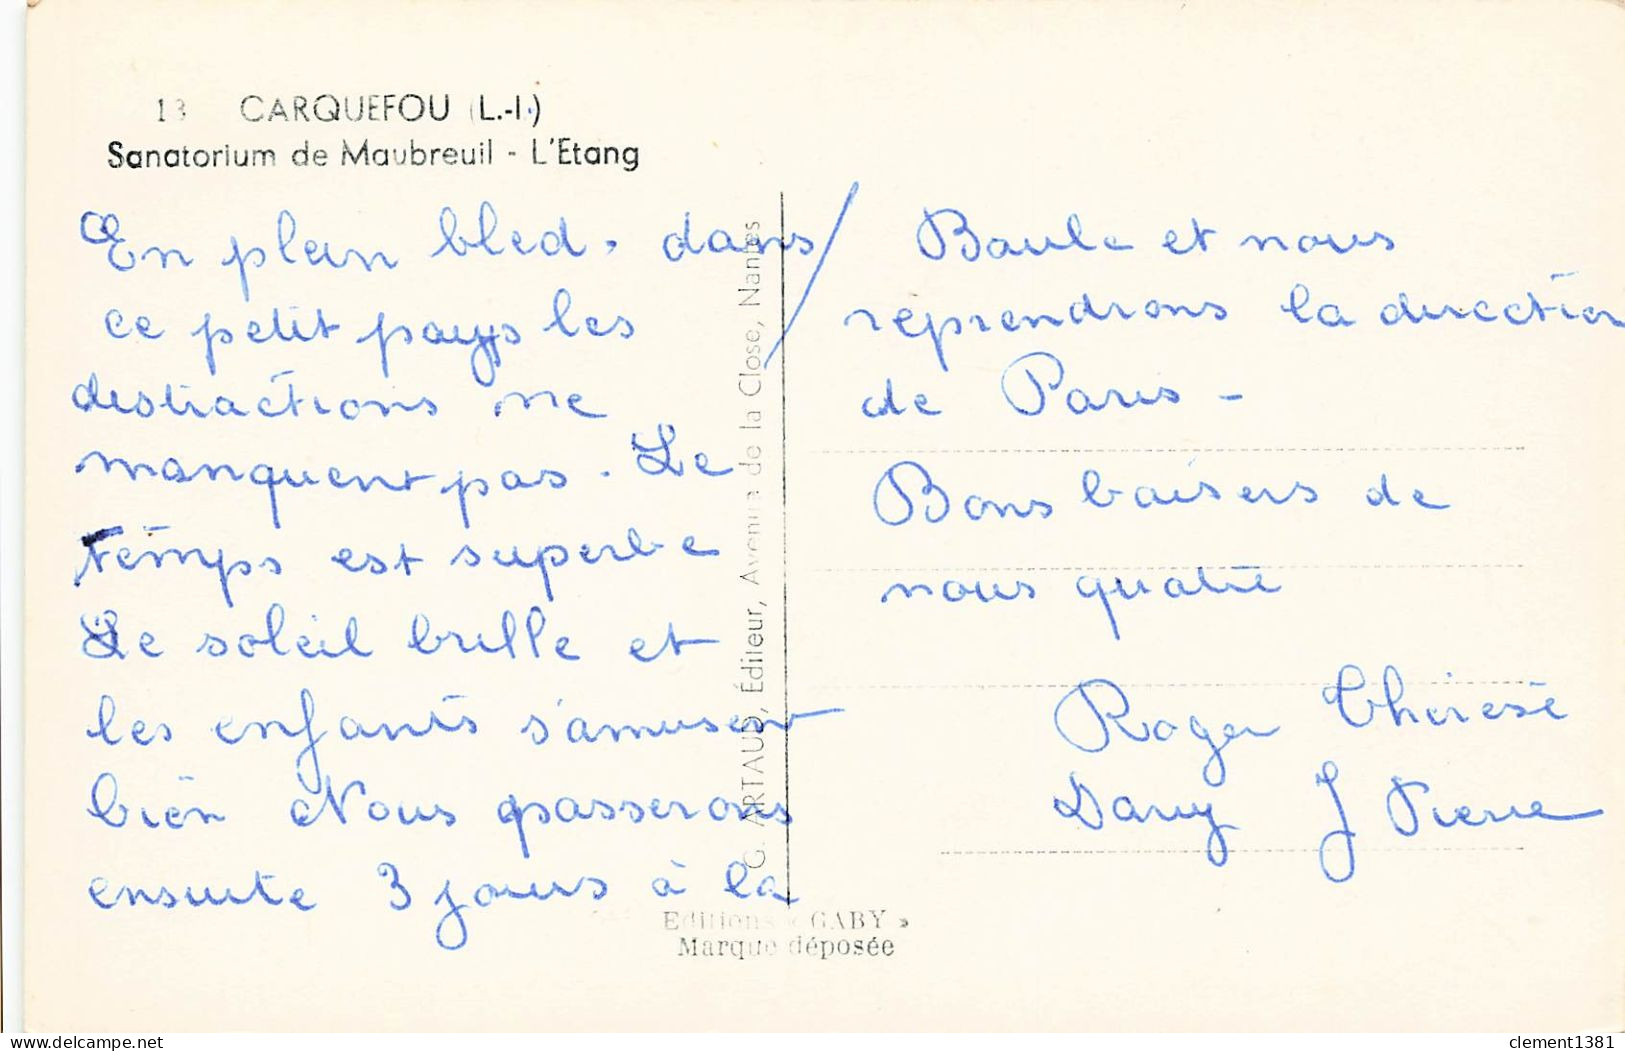 13 CARQUEFOU (L.-I.)
Sanatorium de Maubreuil - L'Etang
En plein bled, dans
ce petit pays les
distractions ne
manquent pas. Le
temps est superbe
Le soleil brille et
les enfants s'amusent
bien Nous passerons
ensuite 3 jours à la
Baule et nous
reprendrons la direction
de Paris -
Bons baisers de
nous quatre
Roger Thérèse
Dany J Pierre
G. ARTAUD, Éditeur, Avenue de la Close, Nantes
Editions « GABY »
Marque déposée
delcampe.net
clement1381